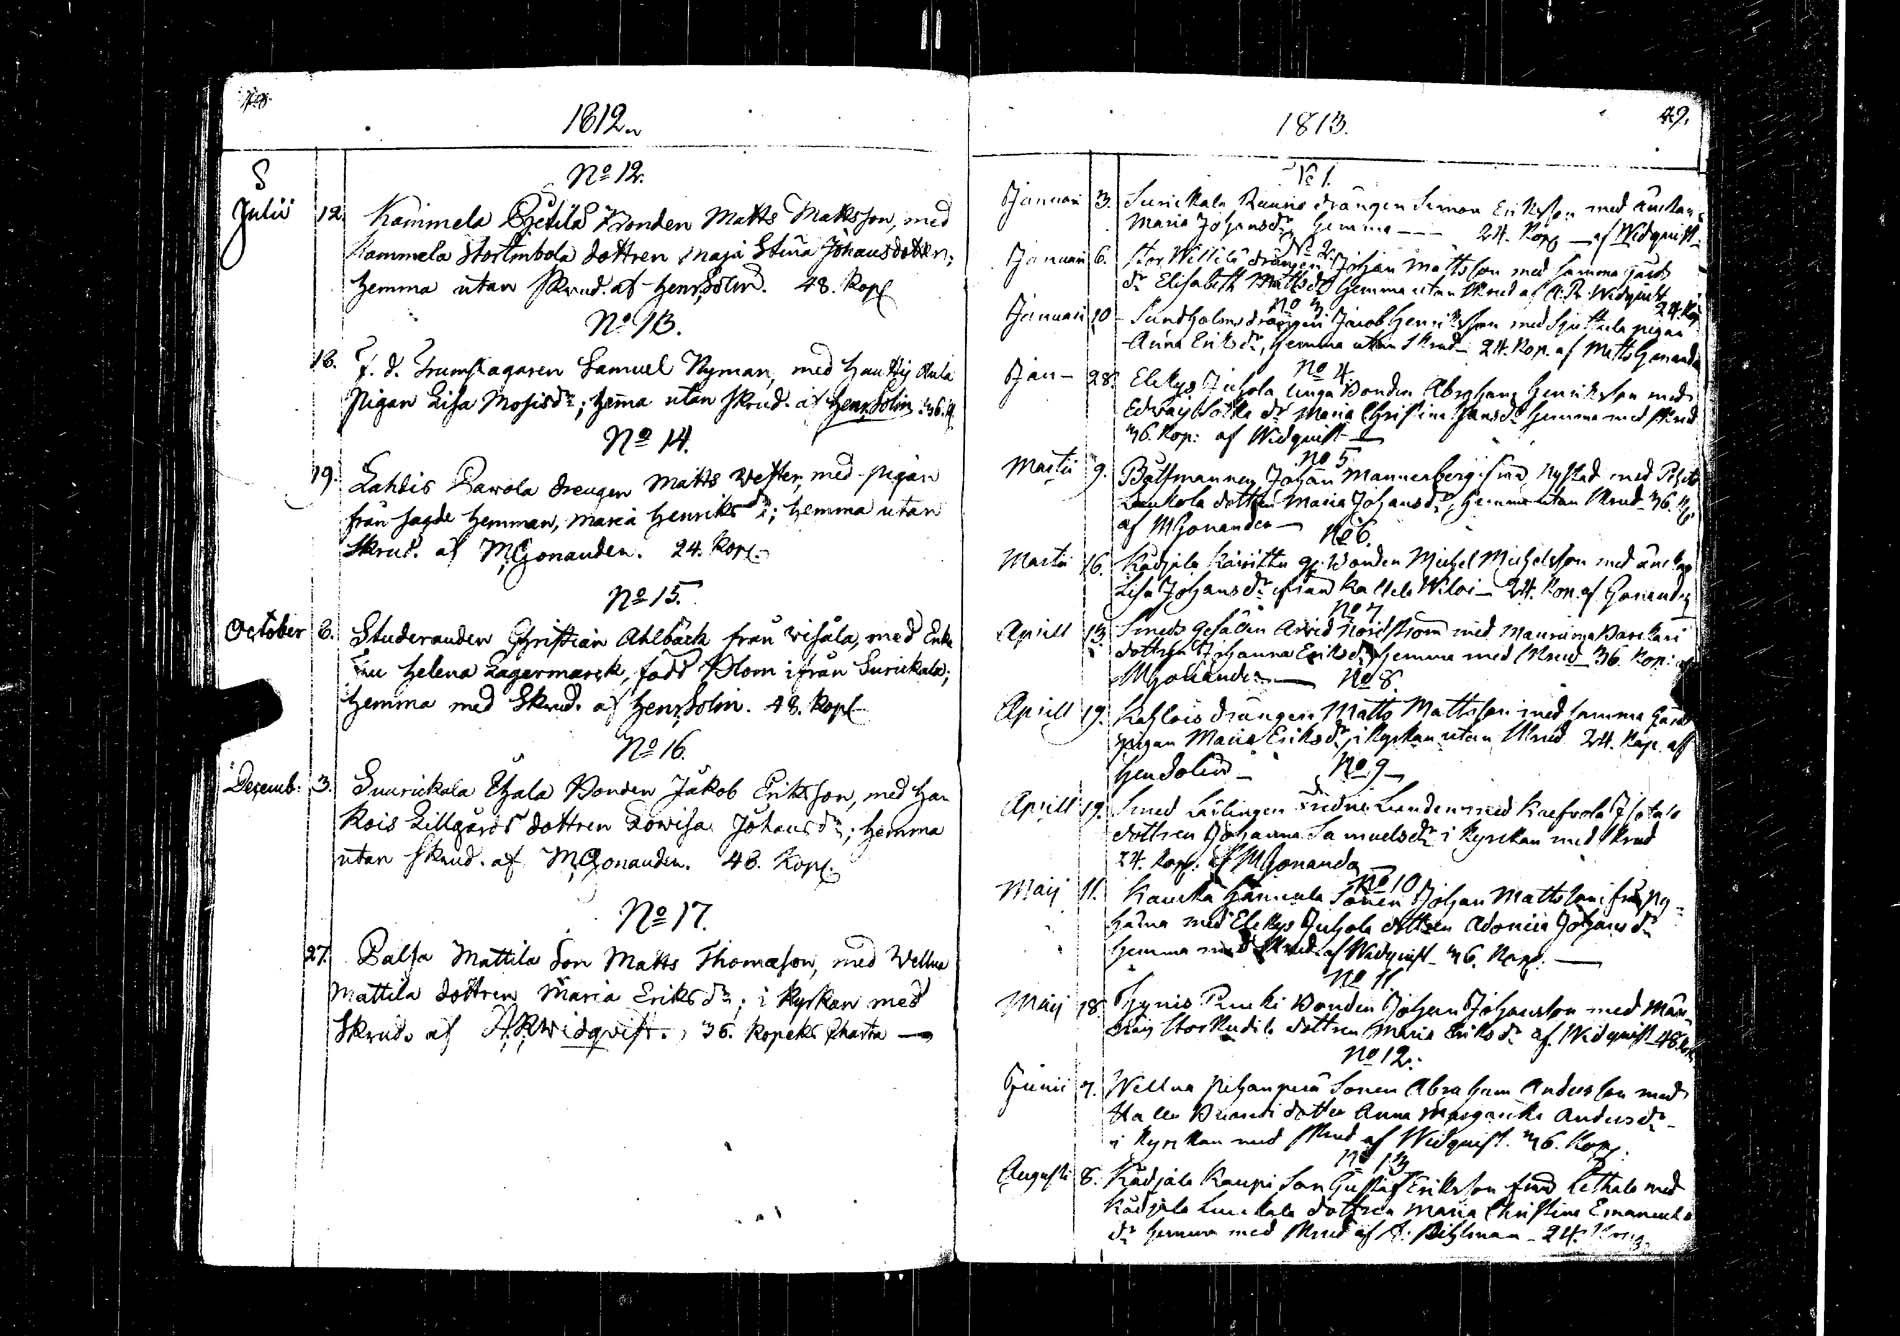 48.
1812.
No 12.
Julii 12. Kammela Bonden Matts Mattsson, med
Kammela dottren Maja Stina Johansdotter;
hemma utan skrud. af Henr. Solin. 48. Kop.
No 13.
13. F. d. Trumslagaren Samuel Nyman, med
Pigan Lisa Mosisdr; hemma utan skrud. af Henr. Solin. 36. K.
No 14.
19. Lahdis Pawola drengen Matts Wester, med pigan
från sagde hemman, Maria Henriksdr; hemma utan
skrud. af M. Gonander. 24. Kop.
No 15.
October 6. Studeranden Christian Ahlbäck från, med Enke
Fru Helena Lagermarck, född Blom ifrån Surickala;
hemma med Skrud. af Henr. Solin. 48. Kop.
No 16.
Decemb. 3. Suurickala Bonden Jakob Eriksson, med
Kois Lillgårds dottren Lowisa Johansdr; hemma
utan skrud. af M. Gonander. 48. Kop.
No 17.
27. Palsa Mattila Son Matts Thomasson, med Wellua
Mattila dottren Maria Eriksdr; i Kyrkan med
Skrud. af A. R. Widqvist. 36. Kopeks Charta
49.
1813.
No 1.
Januari 3. Surickala drängen Simon Eriksson med änkan
Maria Johansdr hemma 24. Kop af Widquist
No 2.
Januari 6. Stor drängen Johan Mattsson med samma gårds
dr Elisabeth Mattsdr hemma utan skrud af A. R. Widquist 24. Kop
No 3
Januari 10 Sundholms drängen Jacob Henriksson med pigan
Anna Eriksdr, hemma utan skrud 24. Kop. af Matts Gonander
No 4.
Jan 28. Elekys Juhola unga Bonden Abraham Henriksson med
dr Maria Christina Hansdr hemma med skrud
36. Kop: af Widquist
No 5
Martii 9. Båtsmannen Johan Mannerberg ifrån Nystad med
dottren Maria Johansdr, hemma utan skrud 36. K
af M Gonander
No 6.
Martii 16. Kådjala Bonden Michel Michelsson med änkan
Lisa Johansdr ifrån 24. Kop. af Gonander
No 7
Aprill 13. Smeds Gesällen Arvid Nordström med
dottren Johanna Eriksdr hemma med skrud 36. Kop: af
M Gonander
No 8.
Aprill 19. drängen Matts Mattsson med samma Gårds
pigan Maria Eriksdr i Kyrkan utan skrud 24. Kop. af
Hen Solin
No 9
Aprill 19. Smed Lärlingen Lunden med
dottren Johanna Samuelsdr i Kyrkan med skrud
24. Kop. af M Gonander
No 10
Maij 11. Sonen Johan Mattsson
med Elekys Juhola dottren Johansdr
hemma med skrud af Widquist 36. Kop.
No 11
Maij 18. Bonden Johan Johansson med
dottren Maria Eriksdr af Widquist 48. Kop
No 12.
Junii 7. Wellua Sonen Abraham Andersson med
dotter Anna Margareta Andersdr
i Kyrkan med skrud af Widquist. 36. Kop.
No 13
Augusti 8. Kådjala Kaupi Son Gustaf Eriksson med
Kådjala dottren Maria Christina Emanuels
dr hemma med skrud af 24. Kop